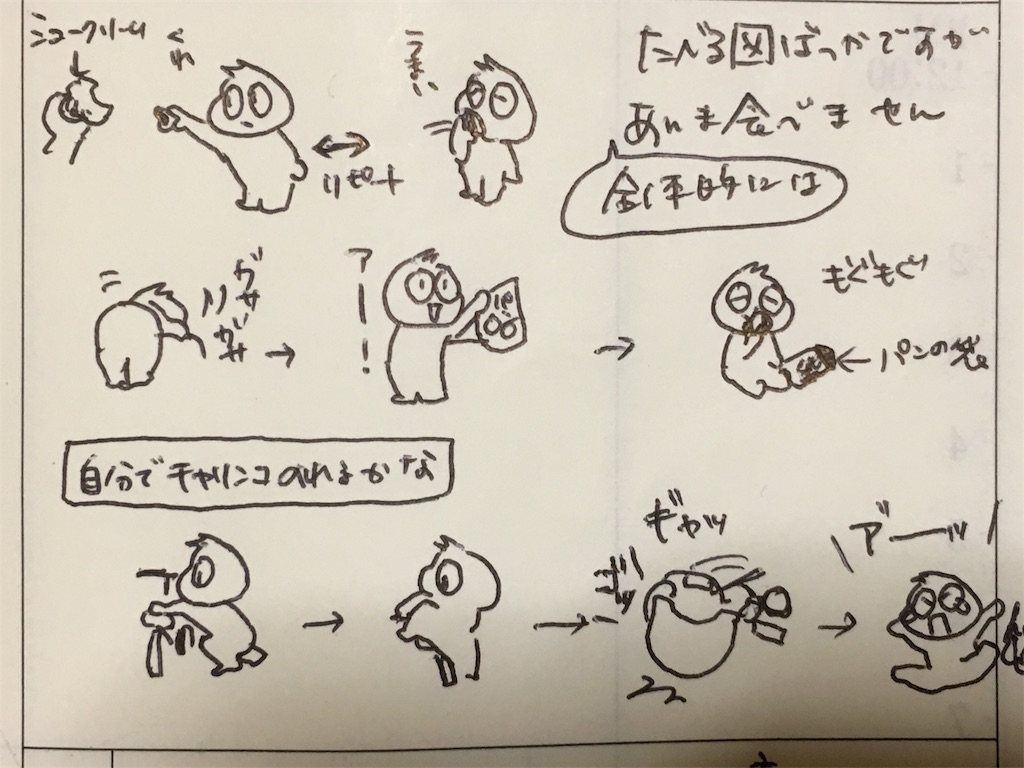 シュークリーム
くれ
うまい
リピート
たべる図ばっかですが
あんま食べません
全体的には
ガサ
ガサ
アー!
もぐもぐ
パンの袋
自分でチャリンコのれるかな
ギャッ
アーッ